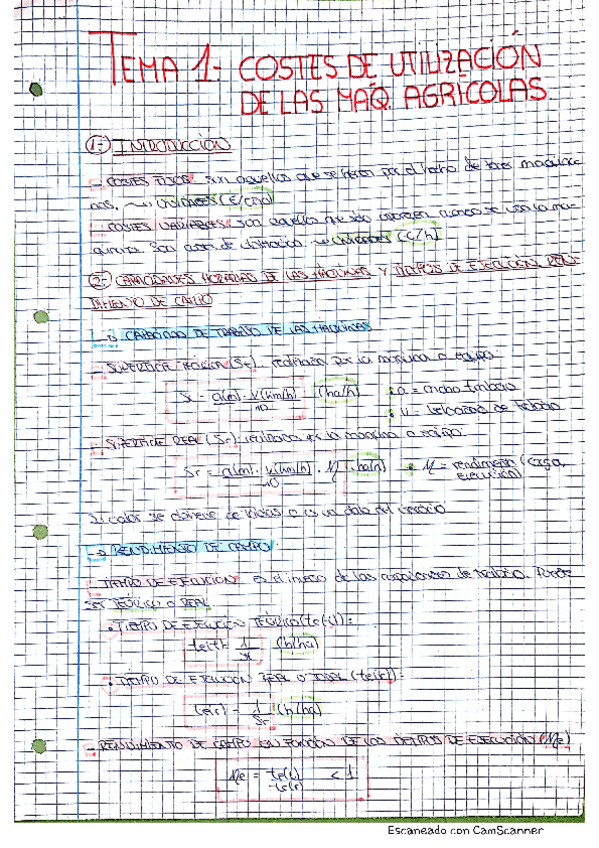 TEMA 1- COSTES DE UTILIZACIÓN
DE LAS MAQ. AGRÍCOLAS.
1- INTRODUCCIÓN
- COSTES FIJOS: son aquellos que se tienen por el hecho de tener maquina-
unidades (€/año)
- COSTES VARIABLES: son aquellos que solo cuando se usa la ma-
quinaria. Son unidades (€/h)
2- CAPACIDADES DE LAS MÁQUINAS Y TIEMPOS DE EJECUCIÓN. REN-
DIMIENTO DE CAMPO
→ CAPACIDAD DE TRABAJO DE LAS MÁQUINAS
- SUPERFICIE TEÓRICA (St). realizada por la máquina o equipo.
St = a(m) · v(km/h) / 10 (ha/h) • a = ancho trabajo
• v = velocidad de trabajo
- SUPERFICIE REAL (Sr). realizada por la máquina o equipo.
Sr = a(m) · v(km/h) / 10 · η (ha/h) • η = rendimiento
ejecución)
valor se obtiene de o es un dato del
→ RENDIMIENTO DE CAMPO
- TIEMPO DE EJECUCIÓN es el inverso de las capacidades de trabajo. Puede
ser TEÓRICO o REAL
• TIEMPO DE EJECUCIÓN TEÓRICO (te(t)):
te(t) = 1 / St (h/ha)
• TIEMPO DE EJECUCIÓN REAL O TOTAL (te(r)):
te(r) = 1 / Sr (h/ha)
- RENDIMIENTO DE CAMPO EN FUNCIÓN DE LOS TIEMPOS DE EJECUCIÓN (ηe)
ηe = te(t) / te(r) < 1
Escaneado con CamScanner